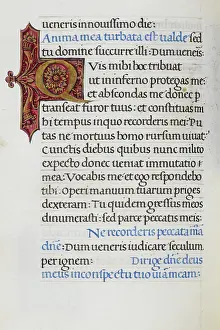 ueneris innouissimo die:
Anima mea turbata est ualde sed
tu domine succurre illi: Dum ueneris:
Quis mihi hec tribuat
ut in inferno protegas me:
et abscondas me donec p
transeat furor tuus: et constituas mi
hi tempus in quo recorderis mei: Pu
tas ne mortuus homo rursum uiuat:
Cunctis diebus quibus nunc milito
expecto donec ueniat immutatio m
mea: Vocabis me et ego respondebo
tibi: Operi manuum tuarum priges
dexteram: Tu quidem gressus meos
dinumerasti: sed parce peccatis meis:
Ne recorderis peccata mea
dñe: Dum ueneris iudicare seculum
per ignem: Dirige dñe deus
meus in conspectu tuo uiam meam: